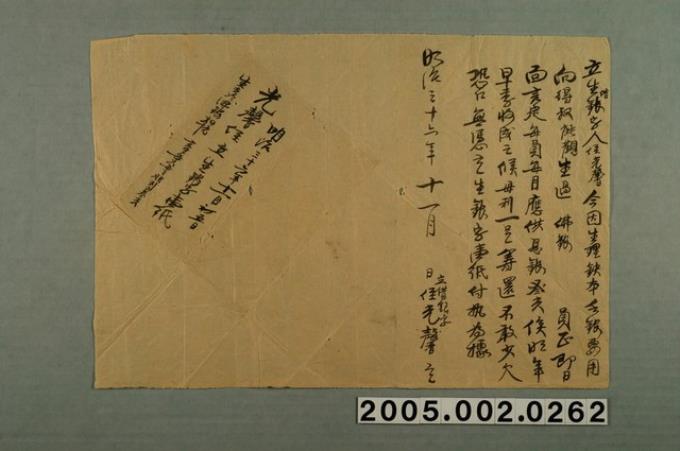 立生銀字人侄光聲今因生理缺本乏銀費用
向得叔 生過佛銀 員正即日
面言定每員每月應供息銀 侯明年
早季收成之侯母利一足籌還不敢少欠
恐口無憑立生銀字壹紙付執為據
明治三十六年十一月 日立借銀字侄光聲立
明治三十六年十一月廿五日
光聲侄立生銀字壹紙
2005.002.0262